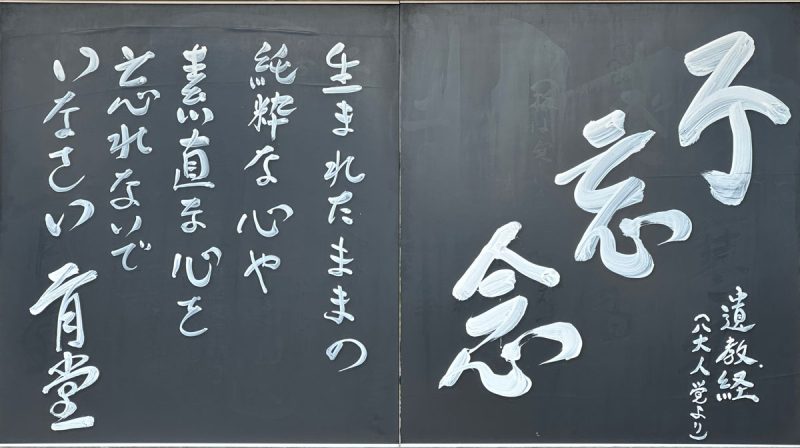 不忘念
遺教経
(八大人覚より)
生まれたままの
純粋な心や
素直な心を
忘れないで
いなさい 育堂